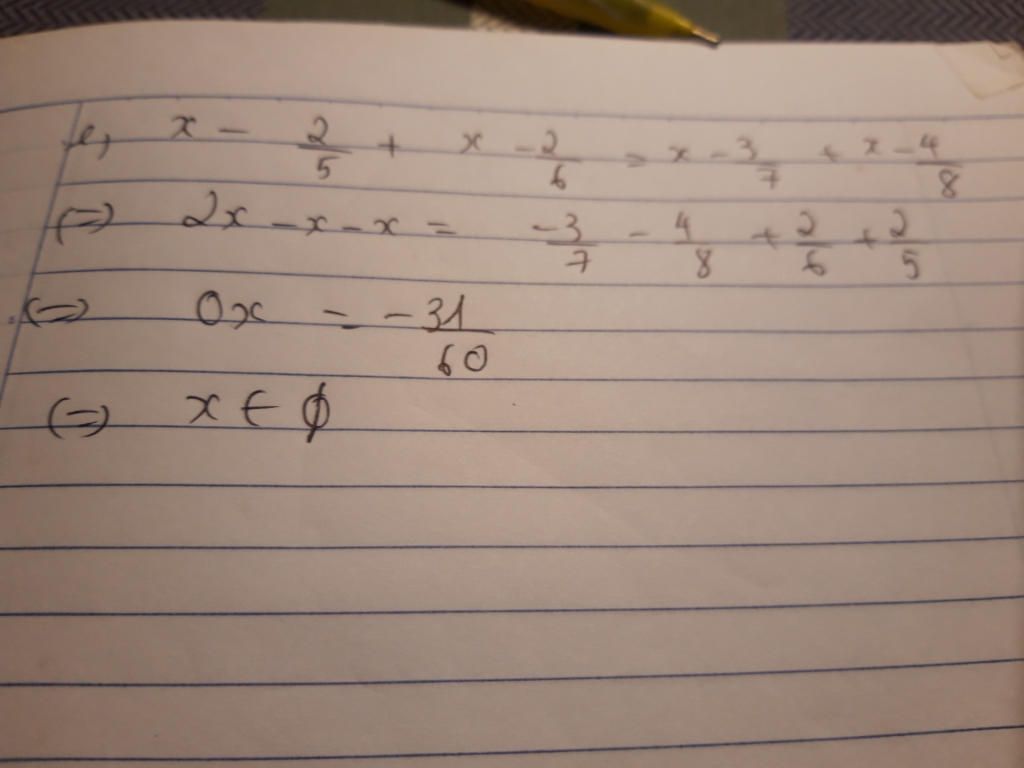 e, x - 2/5 + x - 2/6 = x - 3/7 + x - 4/8
(=) 2x - x - x = -3/7 - 4/8 + 2/6 + 2/5
(=) 0x = -31/60
(=) x ∈ ∅